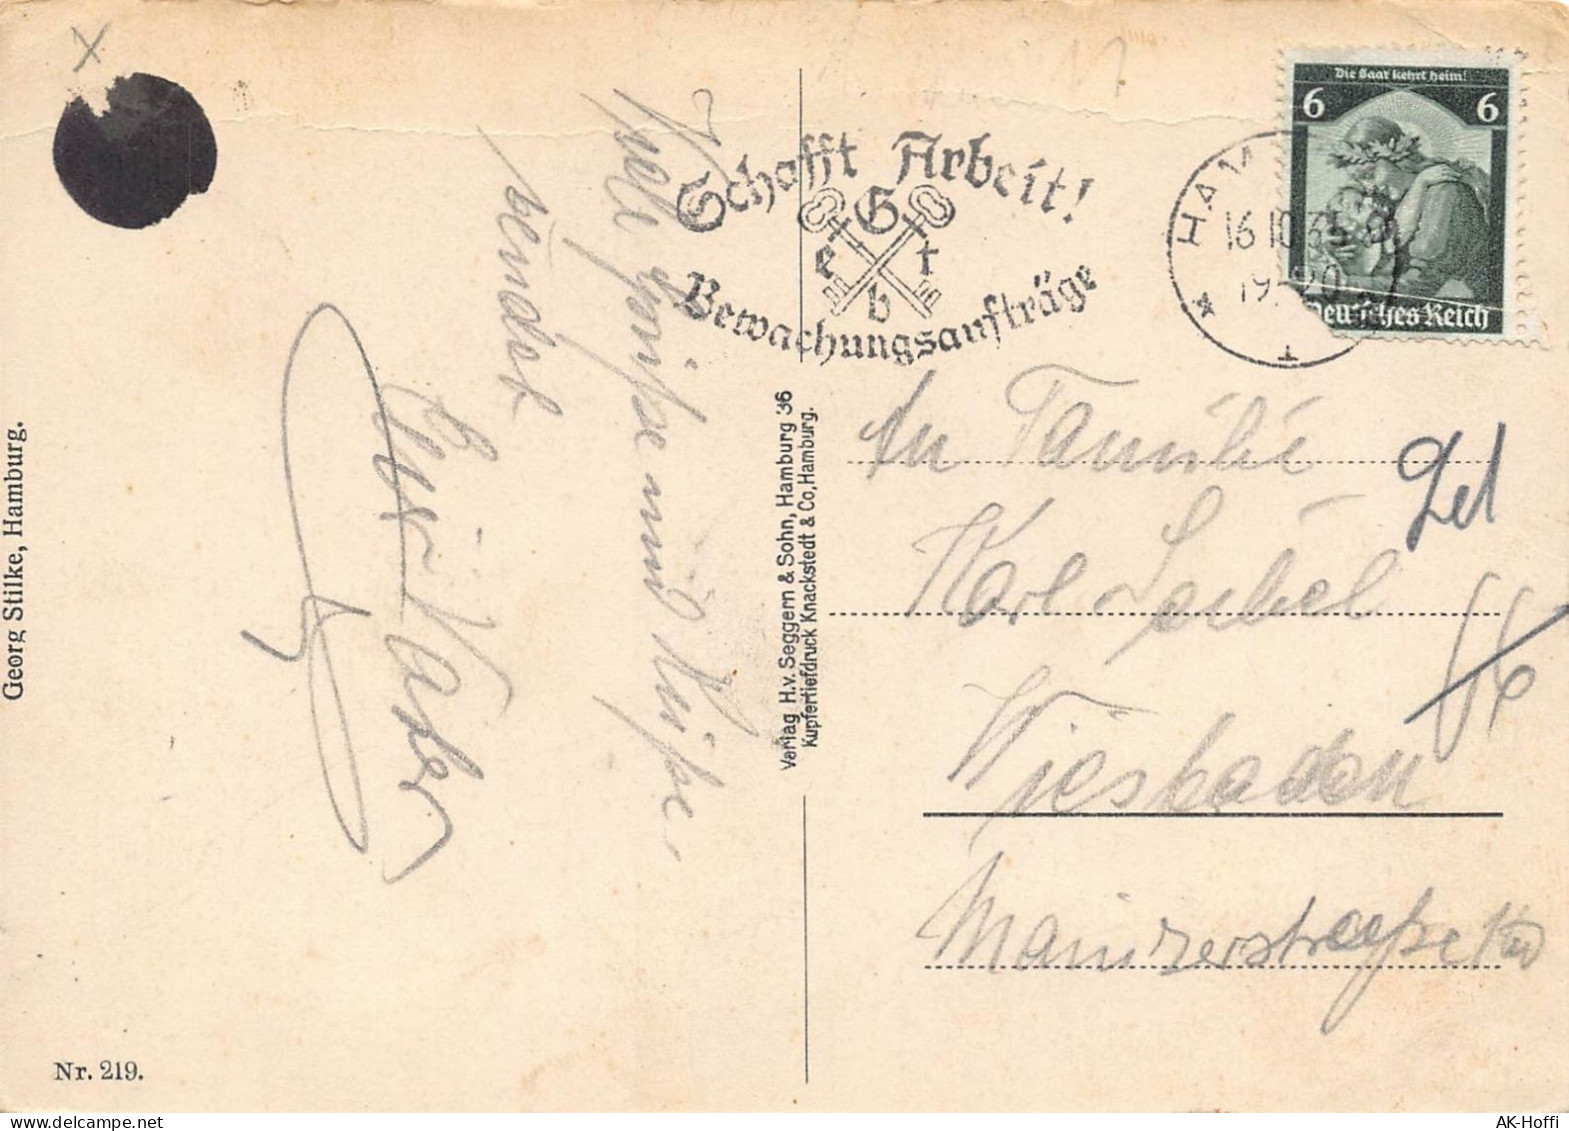 Die Saar kehrt heim!
6 6
Deutsches Reich
Schafft Arbeit!
Gebt
Bewachungsaufträge
HAM
16.10.35
19-20
1
Viele Grüße und Küsse
sendet
Euer Vater
An Familie
Karl Seibel
Wiesbaden
Mainzerstraße
Verlag H.v. Seggern & Sohn, Hamburg 36
Kupfertiefdruck Knackstedt & Co, Hamburg.
Georg Stilke, Hamburg.
Nr. 219.
X
AK-Hoffi